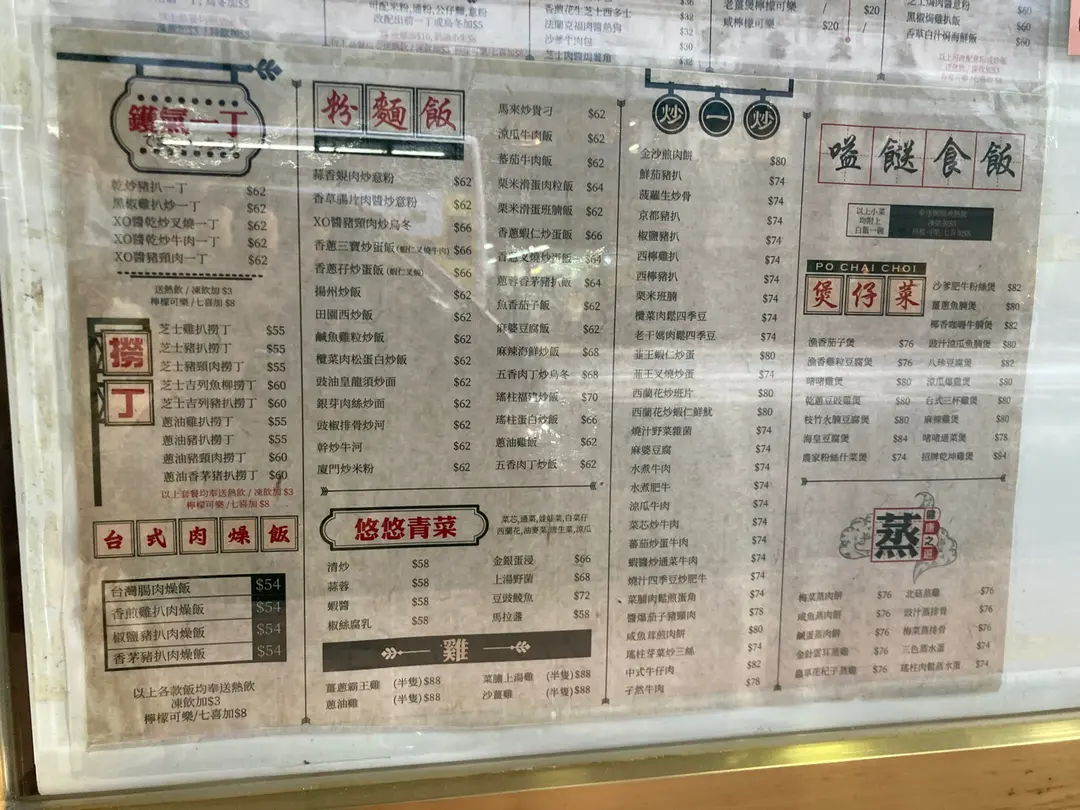 可配米粉,通粉,公仔麵,意粉
改配出前一丁或烏冬加$5
香煎花生芝士西多士
法蘭克福肉醬熱狗
$32
沙爹牛肉包
$30
芝士肉醬焗薯角
$32
老薑煲檸檬可樂
$20
咸檸檬可樂
$20
芝士焗肉醬意粉
$60
黑椒焗雞扒飯
$60
香草白汁焗海鮮飯
$60
鑊氣一丁
乾炒豬扒一丁 $62
黑椒雞扒炒一丁 $62
XO醬乾炒叉燒一丁 $62
XO醬乾炒牛肉一丁 $62
XO醬豬頸肉一丁 $62
送熱飲 / 凍飲加 $3
檸檬可樂/七喜加 $8
撈丁
芝士雞扒撈丁 $55
芝士豬扒撈丁 $55
芝士豬頸肉撈丁 $55
芝士吉列魚柳撈丁 $60
芝士吉列豬扒撈丁 $60
蔥油雞扒撈丁 $55
蔥油豬扒撈丁 $55
蔥油豬頸肉撈丁 $60
蔥油香茅豬扒撈丁 $60
以上套餐均奉送熱飲 / 凍飲加 $3
檸檬可樂 /七喜加 $8
台式肉燥飯
台灣腸肉燥飯 $54
香煎雞扒肉燥飯 $54
椒鹽豬扒肉燥飯 $54
香茅豬扒肉燥飯 $54
以上各款飯均奉送熱飲
凍飲加$3
檸檬可樂/七喜加$8
粉麵飯
蒜香蜆肉炒意粉 $62
香草腸片肉醬炒意粉 $62
XO醬豬頸肉炒烏冬 $66
香蔥三寶炒蛋飯(蝦仁叉燒牛肉) $66
香蔥孖炒蛋飯 $66
揚州炒飯 $62
田園西炒飯 $62
鹹魚雞粒炒飯 $62
欖菜肉松蛋白炒飯 $62
豉油皇龍須炒面 $62
銀芽肉絲炒面 $62
豉椒排骨炒河 $62
幹炒牛河 $62
廈門炒米粉 $62
馬來炒貴刁 $62
涼瓜牛肉飯 $62
蕃茄牛肉飯 $62
栗米滑蛋肉粒飯 $64
栗米滑蛋班腩飯 $62
香蔥蝦仁炒蛋飯 $66
香蔥叉燒炒蛋飯 $64
蔥蓉香茅豬扒飯 $64
魚香茄子飯 $62
麻婆豆腐飯 $62
麻辣海鮮炒飯 $68
五香肉丁炒烏冬 $68
瑤柱福建炒飯 $70
瑤柱蛋白炒飯 $66
蔥油雞飯 $62
五香肉丁炒飯 $62
悠悠青菜
菜芯,通菜,娃娃菜,白菜仔
西蘭花,油麥菜,唐生菜,涼瓜
清炒 $58
蒜蓉 $58
蝦醬 $58
椒絲腐乳 $58
金銀蛋浸 $66
上湯野菌 $68
豆豉鯪魚 $72
馬拉盞 $58
雞
薑蔥霸王雞 (半隻) $88
蔥油雞 (半隻) $88
菜脯上湯雞 (半隻) $88
沙薑雞 (半隻) $88
炒一炒
金沙煎肉餅 $80
鮮茄豬扒 $74
菠蘿生炒骨 $74
京都豬扒 $74
椒鹽豬扒 $74
西檸雞扒 $74
西檸豬扒 $74
栗米班腩 $74
欖菜肉鬆四季豆 $74
老干媽肉鬆四季豆 $74
韮王蝦仁炒蛋 $80
韮王叉燒炒蛋 $74
西蘭花炒班片 $80
西蘭花炒蝦仁鮮魷 $80
燒汁野菜雜菌 $74
麻婆豆腐 $74
水煮牛肉 $74
水煮肥牛 $74
涼瓜牛肉 $74
菜芯炒牛肉 $74
蕃茄炒蛋牛肉 $74
蝦醬炒通菜牛肉 $74
燒汁四季豆炒肥牛 $74
菜脯肉鬆煎蛋角 $74
醬爆茄子豬頸肉 $78
咸魚茸煎肉餅 $80
瑤柱芽菜炒三絲 $74
中式牛仔肉 $82
孜然牛肉 $78
嗌餸食飯
以上小菜
均附上
白飯一碗
奉送例湯或熱飲
凍飲加$3
檸檬可樂/七喜加$8
PO CHAI CHOI
煲仔菜
沙爹肥牛粉絲煲 $82
薑蔥魚腩煲 $80
椰香咖喱牛腩煲 $82
漁香茄子煲 $76
漁香雞粒豆腐煲 $76
啫啫雞煲 $80
乾蔥豆豉雞煲 $80
枝竹火腩豆腐煲 $80
海皇豆腐煲 $84
農家粉絲什菜煲 $74
豉汁涼瓜魚腩煲 $80
八珍豆腐煲 $82
涼瓜爆雞煲 $80
台式三杯雞煲 $80
麻辣雞煲 $80
啫啫通菜煲 $78
招牌乾坤雞煲 $84
蒸
健康之選
梅菜蒸肉餅 $76
咸魚蒸肉餅 $76
鹹蛋蒸肉餅 $76
金針雲耳蒸雞 $76
蟲草花杞子蒸雞 $76
北菇蒸雞 $76
豉汁蒸排骨 $76
梅菜蒸排骨 $76
三色蒸水蛋 $74
瑤柱肉鬆蒸水蛋 $74